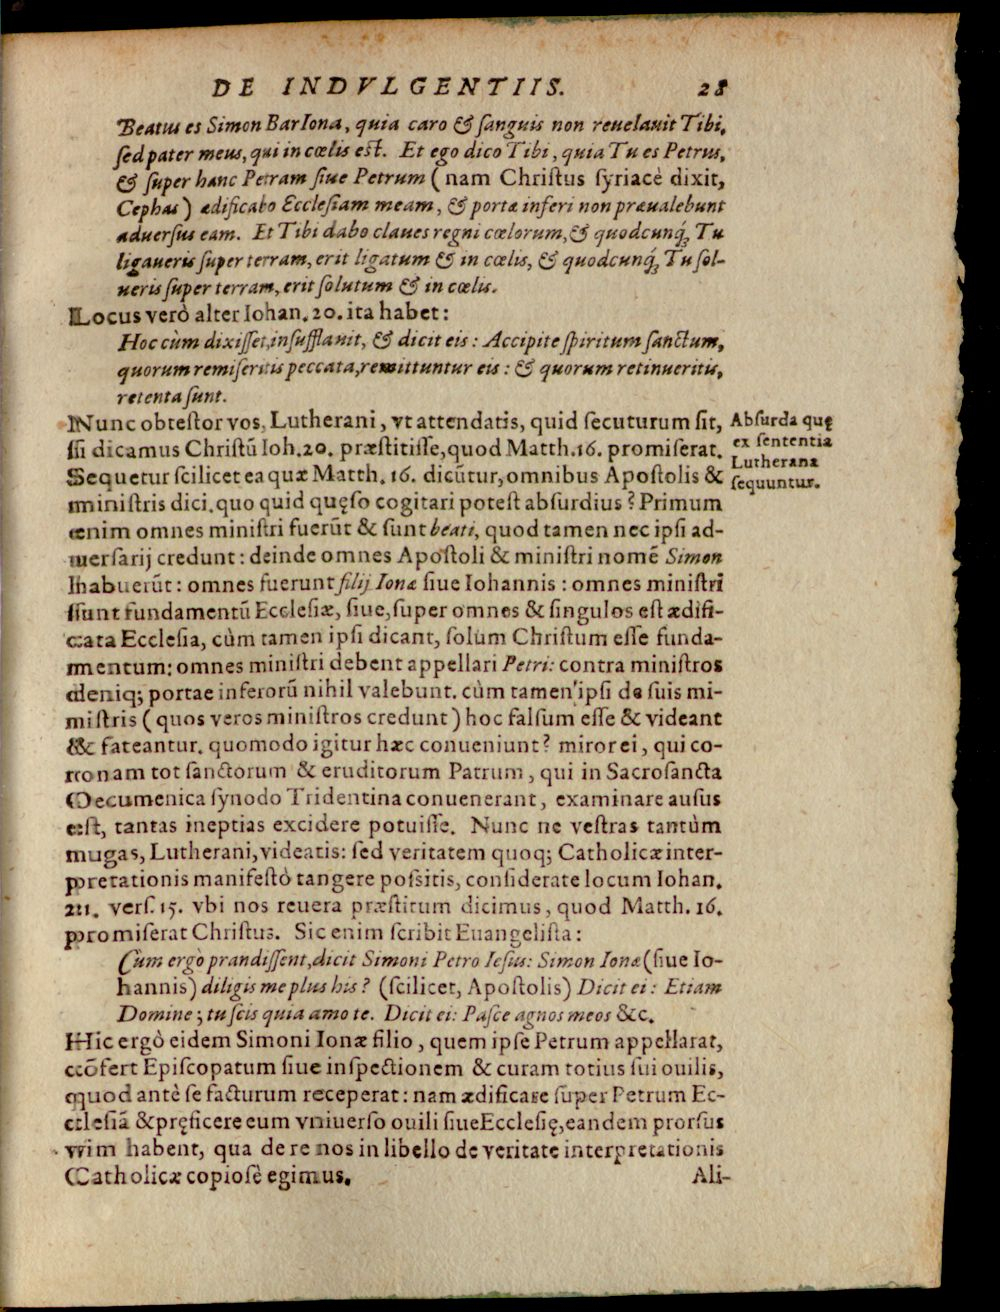 DE INDVLGENTIIS. 28
Beatus es Simon BarIona, quia caro & sanguis non reuelauit Tibi,
sed pater meus, qui in cœlis est. Et ego dico Tibi, quia Tu es Petrus,
& super hanc Petram siue Petrum (nam Christus syriacè dixit,
Cephas) ædificabo Ecclesiam meam, & portæ inferi non præualebunt
aduersus eam. Et Tibi dabo claues regni cœlorum, & quodcunq; Tu
ligaueris super terram, erit ligatum & in cœlis, & quodcunq; Tu sol-
ueris super terram, erit solutum & in cœlis.
Locus verò alter Iohan. 20. ita habet:
Hoc cùm dixisset, insufflauit, & dicit eis: Accipite spiritum sanctum,
quorum remiseritis peccata, remittuntur eis: & quorum retinueritis,
retenta sunt.
Nunc obtestor vos, Lutherani, vt attendatis, quid secuturum sit,
si dicamus Christū Ioh. 20. præstitisse, quod Matth. 16. promiserat.
Sequetur scilicet ea quæ Matth. 16. dicūtur, omnibus Apostolis &
ministris dici, quo quid quęso cogitari potest absurdius? Primum
enim omnes ministri fuerūt & sunt beati, quod tamen nec ipsi ad-
uersarij credunt: deinde omnes Apostoli & ministri nomē Simon
habuerūt: omnes fuerunt filij Ionæ siue Iohannis: omnes ministri
sunt fundamentū Ecclesiæ, siue, super omnes & singulos est ædifi-
cata Ecclesia, cùm tamen ipsi dicant, solùm Christum esse funda-
mentum: omnes ministri debent appellari Petri: contra ministros
deniq; portae inferorū nihil valebunt. cùm tamen ipsi de suis mi-
nistris (quos veros ministros credunt) hoc falsum esse & videant
& fateantur. quomodo igitur hæc conueniunt? miror ei, qui co-
ronam tot sanctorum & eruditorum Patrum, qui in Sacrosancta
Oecumenica synodo Tridentina conuenerant, examinare ausus
est, tantas ineptias excidere potuisse. Nunc ne vestras tantùm
nugas, Lutherani, videatis: sed veritatem quoq; Catholicæ inter-
pretationis manifestò tangere possitis, considerate locum Iohan.
21. vers. 15. vbi nos reuera præstitum dicimus, quod Matth. 16.
promiserat Christus. Sic enim scribit Euangelista:
Cum ergo prandissent, dicit Simoni Petro Iesus: Simon Ionæ (siue Io-
hannis) diligis me plus his? (scilicet, Apostolis) Dicit ei: Etiam
Domine; tu scis quia amo te. Dicit ei: Pasce agnos meos &c.
Hic ergò eidem Simoni Ionæ filio, quem ipse Petrum appellarat,
cōfert Episcopatum siue inspectionem & curam totius sui ouilis,
quod antè se facturum receperat: nam ædificare super Petrum Ec-
clesiā & pręficere eum vniuerso ouili siue Ecclesię, eandem prorsus
vim habent, qua de re nos in libello de veritate interpretationis
Catholicæ copiosè egimus.
Ali-
Absurda quę
ex sententia
Lutherana
sequuntur.